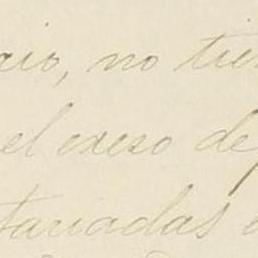 rio, no tien
el exeso de
tariadas